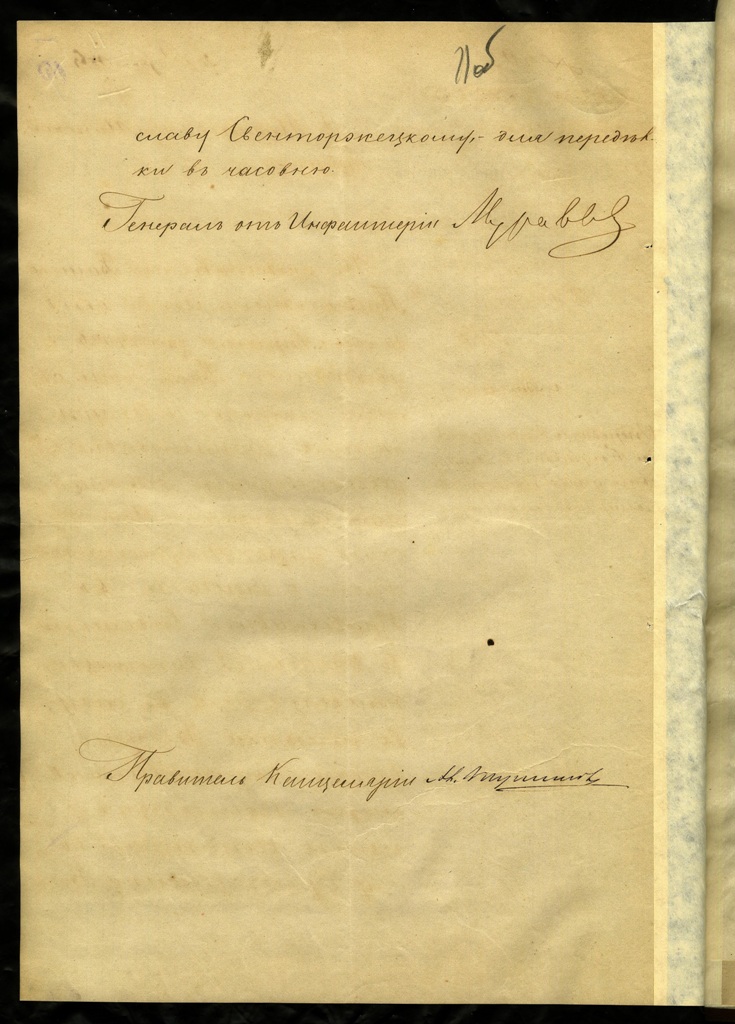 11об
славу Свенторжецкому,- для передѣл-
ки въ часовню.
Генералъ отъ Инфантеріи Муравьевъ
Правитель Канцеляріи